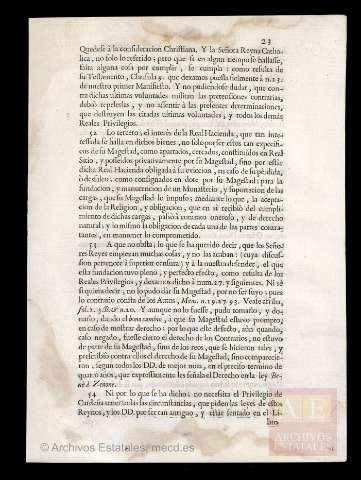 23
Quedese à la consideracion Christiana. Y la Señora Reyna Catho-
lica, no solo lo referido; pero que si en algun tiempo se hallasse,
falta alguna cosa por cumplir, se cumpla: como resulta de
su Testamento, Clausula 9. que dexamos puesta fielmente à n.13.
de nuestro primer Manifiesto. Y no pudiendose dudar, que con-
tra dichas ultimas voluntades militan las pretensiones contrarias,
debiò repelerlas, y no assentir à las presentes determinaciones,
que destruyen las citadas ultimas voluntades, y todos los demàs
Reales Privilegios.
52 Lo tercero, el interès de la Real Hacienda, que tan inte-
ressada se halla en dichos bienes, no solo por ser estos tan especifi-
cos de su Magestad, como apartados, cercados, constituidos en Real
Sitio, y posseidos privativamente por su Magestad, sino por està
dicha Real Hacienda obligada à su eviccion, en caso de su pèrdida,
ò desfalco: como consignados en dote por su Magestad, para la
fundacion, y manutencion de un Monasterio, y suportacion de las
cargas, que su Magestad lo impuso; mediante lo que, la acepta-
cion de la Religion, y obligacion, que en sì recibiò del cumpli-
miento de dichas cargas, passò à contrato oneroso, y de derecho
natural, y lo mismo la obligacion de cada una de las partes contra-
tantes, en mantener lo comprometido.
53 A que no obsta, lo que se ha querido decir, que los Seño-
res Reyes empiezan muchas cosas, y no las acaban: (cuya discus-
sion pertenece à superior censura) y à la nuestra defender, el que
esta fundacion tuvo pleno, y perfecto efecto, como resulta de los
Reales Privilegios, y dexamos dicho à num.27. y siguientes. Ni aè
si quiera decir, no lo pudo dàr su Magestad, por no ser suyo; pues
lo contrario consta de los Autos, Mem. n.19.27.93. Vease atràs,
fol. 2. B.ª n.20. Y aunque no lo fuesse, pudo tomarlo, y do-
narlo, dando el bono cambio, à que su Magestad estuvo prompto,
en caso de mostrar derecho; por lo que este defecto, aùn quando,
caso negado, fuesse cierto el derecho de los Contrarios, no estuvo
de parte de su Magestad, sino de los reos, que se hicieron tales, y
prescribiò contra ellos el derecho de su Magestad, sino comparecie-
ron, segun todos los DD. de mejor nota, en el preciso termino de
quatro años, que expressamente les señala el Derecho en la ley Be-
nè à Zenone.
54 Ni por lo que se ha dicho: no necesita el Privilegio de
Cardeña tener todas las circunstancias, que piden las leyes de estos
Reynos, y los DD. por ser tan antiguo, y estàr sentado en el Li-
bro
© Archivos Estatales, mecd.es
ARCHIVOS
ESTATALES